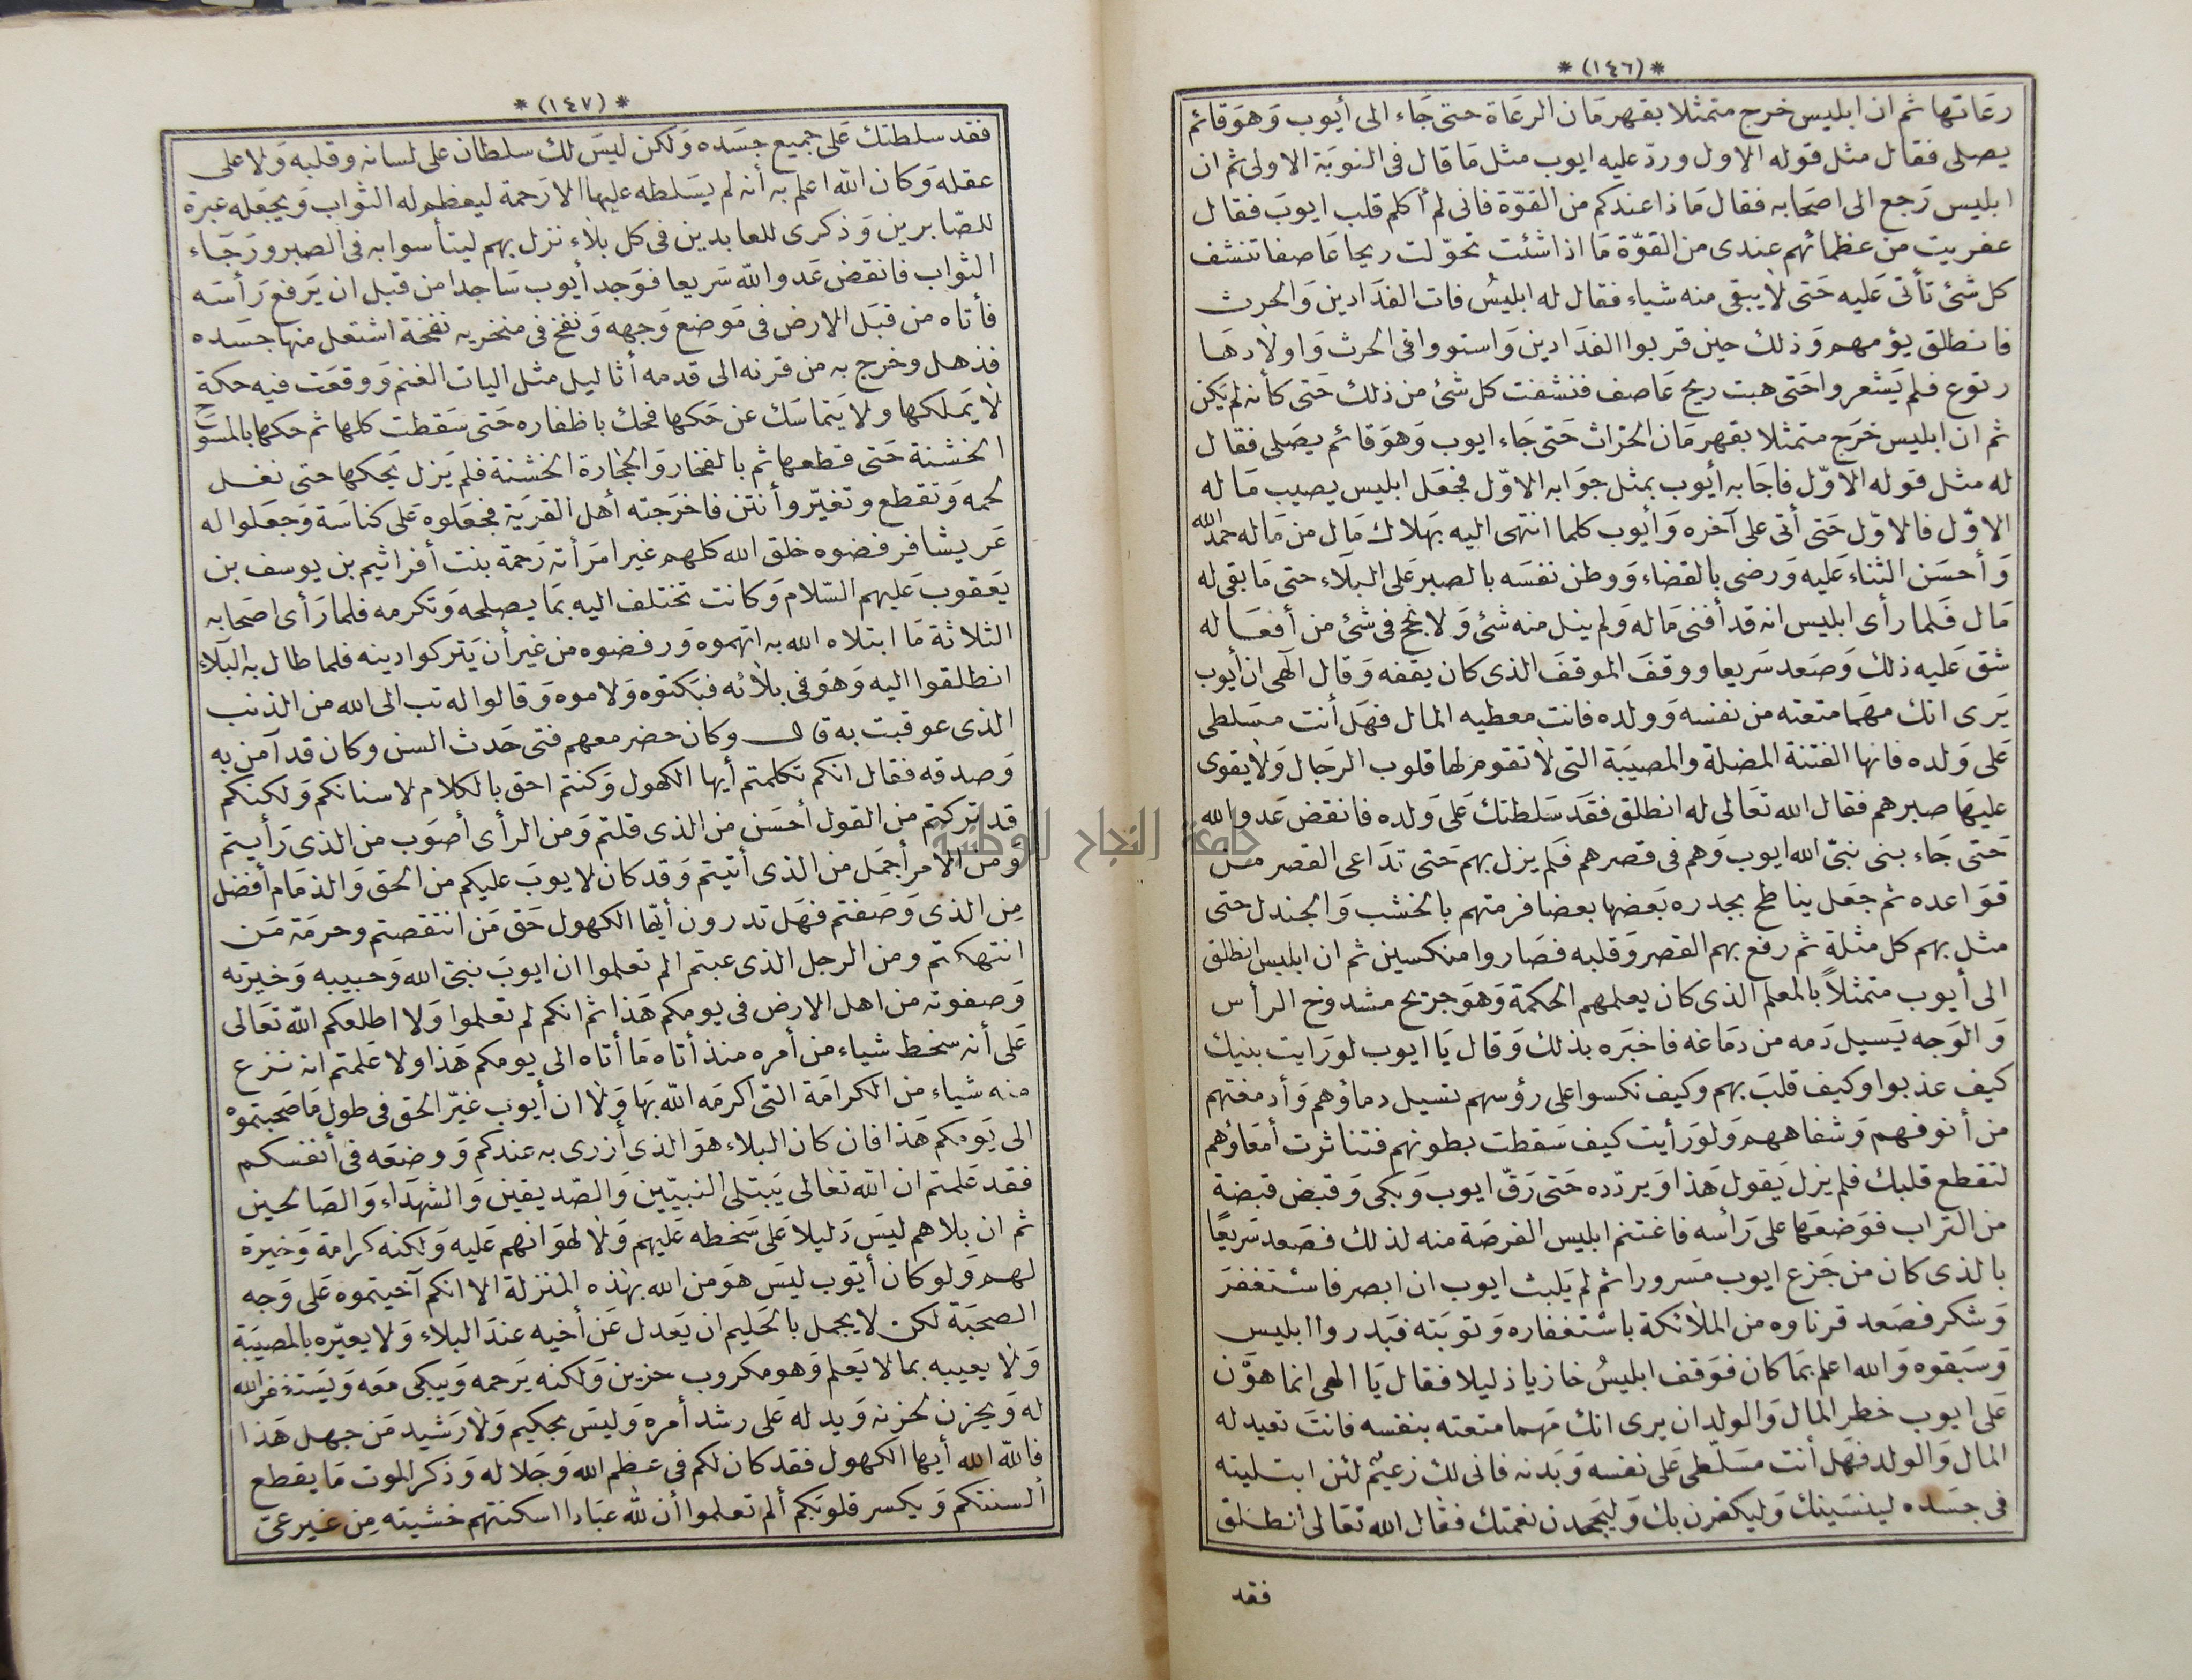 *(١٤٦)*
رعاتها ثم ان ابليس خرج متمثلا بقهرمان الرعاة حتى جاء الى أيوب وهو قائم
يصلى فقال مثل قوله الاول وردّ عليه ايوب مثل ما قال فى النوبة الاولى ثم ان
ابليس رجع الى اصحابه فقال ماذا عندكم من القوّة فانى لم أكلم قلب ايوب فقال
عفريت من عظمائهم عندى من القوّة ما اذا شئت تحوّلت ريحا عاصفا تنشف
كل شئ تأتى عليه حتى لا يبقى منه شياء فقال له ابليسُ فات الفدادين والحرث
فانطلق يؤمهم وذلك حين قربوا الفدادين واستووا فى الحرث واولادها
رتوع فلم يشعروا حتى هبت ريح عاصف فنشفت كل شئ من ذلك حتى كأنه لم يكن
ثم ان ابليس خرج متمثلا بقهرمان الحرّاث حتى جاء ايوب وهو قائم يصلى فقال
له مثل قوله الاوّل فاجابه أيوب بمثل جوابه الاوّل فجعل ابليس يصيب ماله
الاوّل فالاوّل حتى أتى على آخره وأيوب كلما انتهى اليه بهلاك مال من ماله حمد الله
وأحسن الثناء عليه ورضى بالقضاء ووطن نفسه بالصبر على البلاء حتى ما بقى له
مال فلما رأى ابليس انه قد أفنى ماله ولم ينل منه شئ ولا نجح فى شئ من أفعاله
شق عليه ذلك وصعد سريعا ووقف الموقف الذى كان يقفه وقال آلهى ان أيوب
يرى انك مهما متعته من نفسه وولده فانت معطيه المال فهل أنت مسلطى
على ولده فانها الفتنة المضلة والمصيبة التى لا تقوم لها قلوب الرجال ولا يقوى
عليها صبرهم فقال الله تعالى له انطلق فقد سلطتك على ولده فانقض عدو الله
حتى جاء بنى نبىّ الله ايوب وهم فى قصرهم فلم يزل بهم حتى تداعى القصر من
قواعده ثم جعل يناطح بجدره بعضها بعضا فرمتهم بالخشب والجندل حتى
مثل بهم كل مثلة ثم رفع بهم القصر وقلبه فصاروا منكسين ثم ان ابليس انطلق
الى أيوب متمثلاً بالمعلم الذى كان يعلمهم الحكمة وهو جريح مشدوخ الرأس
والوجه يسيل دمه من دماغه فاخبره بذلك وقال يا ايوب لو رايت بنيك
كيف عذبوا وكيف قلب بهم وكيف نكسوا على رؤسهم تسيل دماؤهم وأدمغتهم
من أنوفهم وشفاههم ولو رأيت كيف سقطت بطونهم فتناثرت أمعاؤهم
لتقطع قلبك فلم يزل يقول هذا ويردّده حتى رقّ ايوب وبكى وقبض قبضة
من التراب فوضعها على رأسه فاغتنم ابليس الفرصة منه لذلك فصعد سريعًا
بالذى كان من جزع ايوب مسرورا ثم لم يلبث ايوب ان ابصر فاستغفر
وشكر فصعد قرناوه من الملائكة باستغفاره وتوبته فبدروا ابليس
وسبقوه والله اعلم بما كان فوقف ابليسُ خازيا ذليلا فقال يا الهى انما هوّن
على ايوب خطر المال والولد ان يرى انك مهما متعته بنفسه فانت تعيد له
المال والولد فهل أنت مسلّطى على نفسه وبدنه فانى لك زعيم لئن ابتليته
فى جسده لينسينك وليكفرن بك وليجحدن نعمتك فقال الله تعالى انطلق
فقد
*(١٤٧)*
فقد سلطتك على جميع جسده ولكن ليس لك سلطان على لسانه وقلبه ولا على
عقله وكان الله اعلم به أنه لم يسلطه عليها الا رحمة ليعظم له الثواب ويجعله عبرة
للصّابرين وذكرى للعابدين فى كل بلاء نزل بهم ليتأسوا به فى الصبر ورجاء
الثواب فانقض عدو الله سريعا فوجد أيوب ساجدا من قبل ان يرفع رأسه
فأتاه من قبل الارض فى موضع وجهه ونفخ فى منخريه نفخة اشتعل منها جسده
فذهل وخرج به من قرنه الى قدمه أثاليل مثل اليات الغنم ووقعت فيه حكة
لا يملكها ولا يتماسك عن حكها فحك باظفاره حتى سقطت كلها ثم حكها بالمسوح
الخشنة حتى قطعها ثم بالفخار والحجارة الخشنة فلم يزل يحكها حتى نغل
لحمه وتقطع وتغيّر وأنتن فاخرجته أهل القرية فجعلوه على كناسة وجعلوا له
عريشا فرفضوه خلق الله كلهم غير امرأته رحمة بنت أفراثيم بن يوسف بن
يعقوب عليهم السّلام وكانت تختلف اليه بما يصلحه وتكرمه فلما رأى اصحابه
الثلاثة ما ابتلاه الله به اتهموه ورفضوه من غير أن يتركوا دينه فلما طال به البلاء
انطلقوا اليه وهو فى بلائه فبكتوه ولاموه وقالوا له تب الى الله من الذنب
الذى عوقبت به قال وكان حضر معهم فتى حدث السن وكان قد آمن به
وصدقه فقال انكم تكلمتم أيها الكهول وكنتم احق بالكلام لاسنانكم ولكنكم
قد تركتم من القول أحسن من الذى قلتم ومن الرأى أصوب من الذى رأيتم
ومن الامر أجمل من الذى أتيتم وقد كان لايوب عليكم من الحق والذمام أفضل
من الذى وصفتم فهل تدرون أيّها الكهول حق من انتقصتم وحرمة من
انتهكتم ومن الرجل الذى عبتم الم تعلموا ان ايوب نبىّ الله وحبيبه وخيرته
وصفوته من اهل الارض فى يومكم هذا ثم انكم لم تعلموا ولا اطلعكم الله تعالى
على أنه سخط شياء من أمره منذ أتاه ما أتاه الى يومكم هذا ولا علمتم انه نزع
منه شياء من الكرامة التى اكرمه الله بها ولا ان أيوب غيّر الحق فى طول ما صحبتموه
الى يومكم هذا فان كان البلاء هو الذى أزرى به عندكم ووضعه فى أنفسكم
فقد علمتم ان الله تعالى يبتلى النبيّين والصّديقين والشهداء والصالحين
ثم ان بلاهم ليس دليلا على سخطه عليهم ولا لهوانهم عليه ولكنه كرامة وخيرة
لهم ولو كان أيّوب ليس هو من الله بهذه المنزلة الا انكم آخيتموه على وجه
الصحبة لكن لا يجمل بالحليم ان يعدل عن أخيه عند البلاء ولا يعيّره بالمصيبة
ولا يعيبه بما لا يعلم وهو مكروب حزين ولكنه يرحمه ويبكى معه ويستغفر الله
له ويحزن لحزنه ويدله على رشد أمره وليس بحكيم ولا رشيد من جهل هذا
فالله الله أيها الكهول فقد كان لكم فى عظم الله وجلاله وذكر الموت ما يقطع
ألسنتكم ويكسر قلوبكم ألم تعلموا أن لله عبادا اسكنتهم خشيته من غير عىّ
جامعة النجاح الوطنية